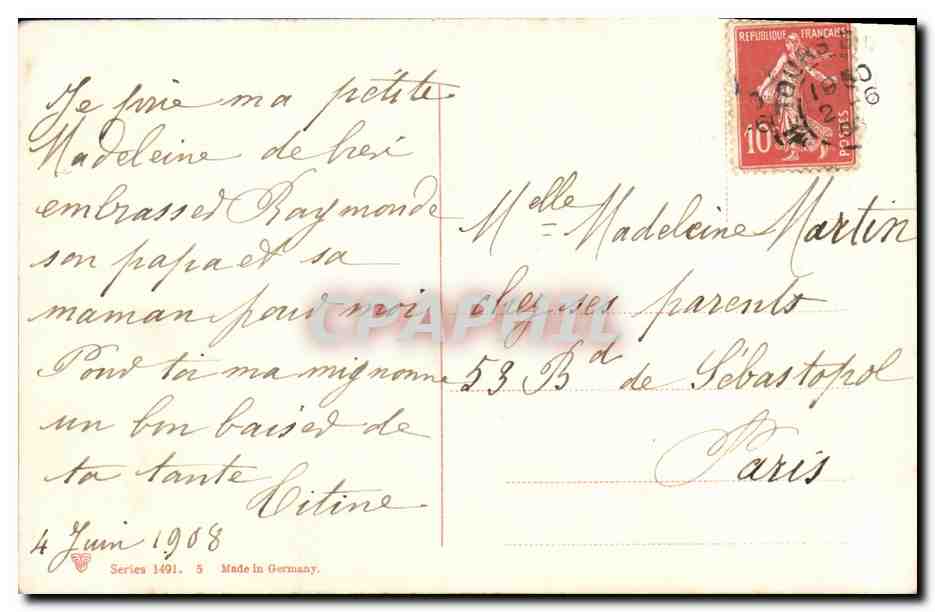 Je prie ma petite
Madeleine de bien
embrasser Raymonde
son papa et sa
maman pour moi
Pour toi ma mignonne
un bon baiser de
ta tante
Titine
4 Juin 1908
Series 1491. 5 Made in Germany.
REPUBLIQUE FRANÇAISE
10
POSTES
TOURS
Melle Madeleine Martin
chez ses parents
53 Bd de Sébastopol
Paris
CPAPHIL